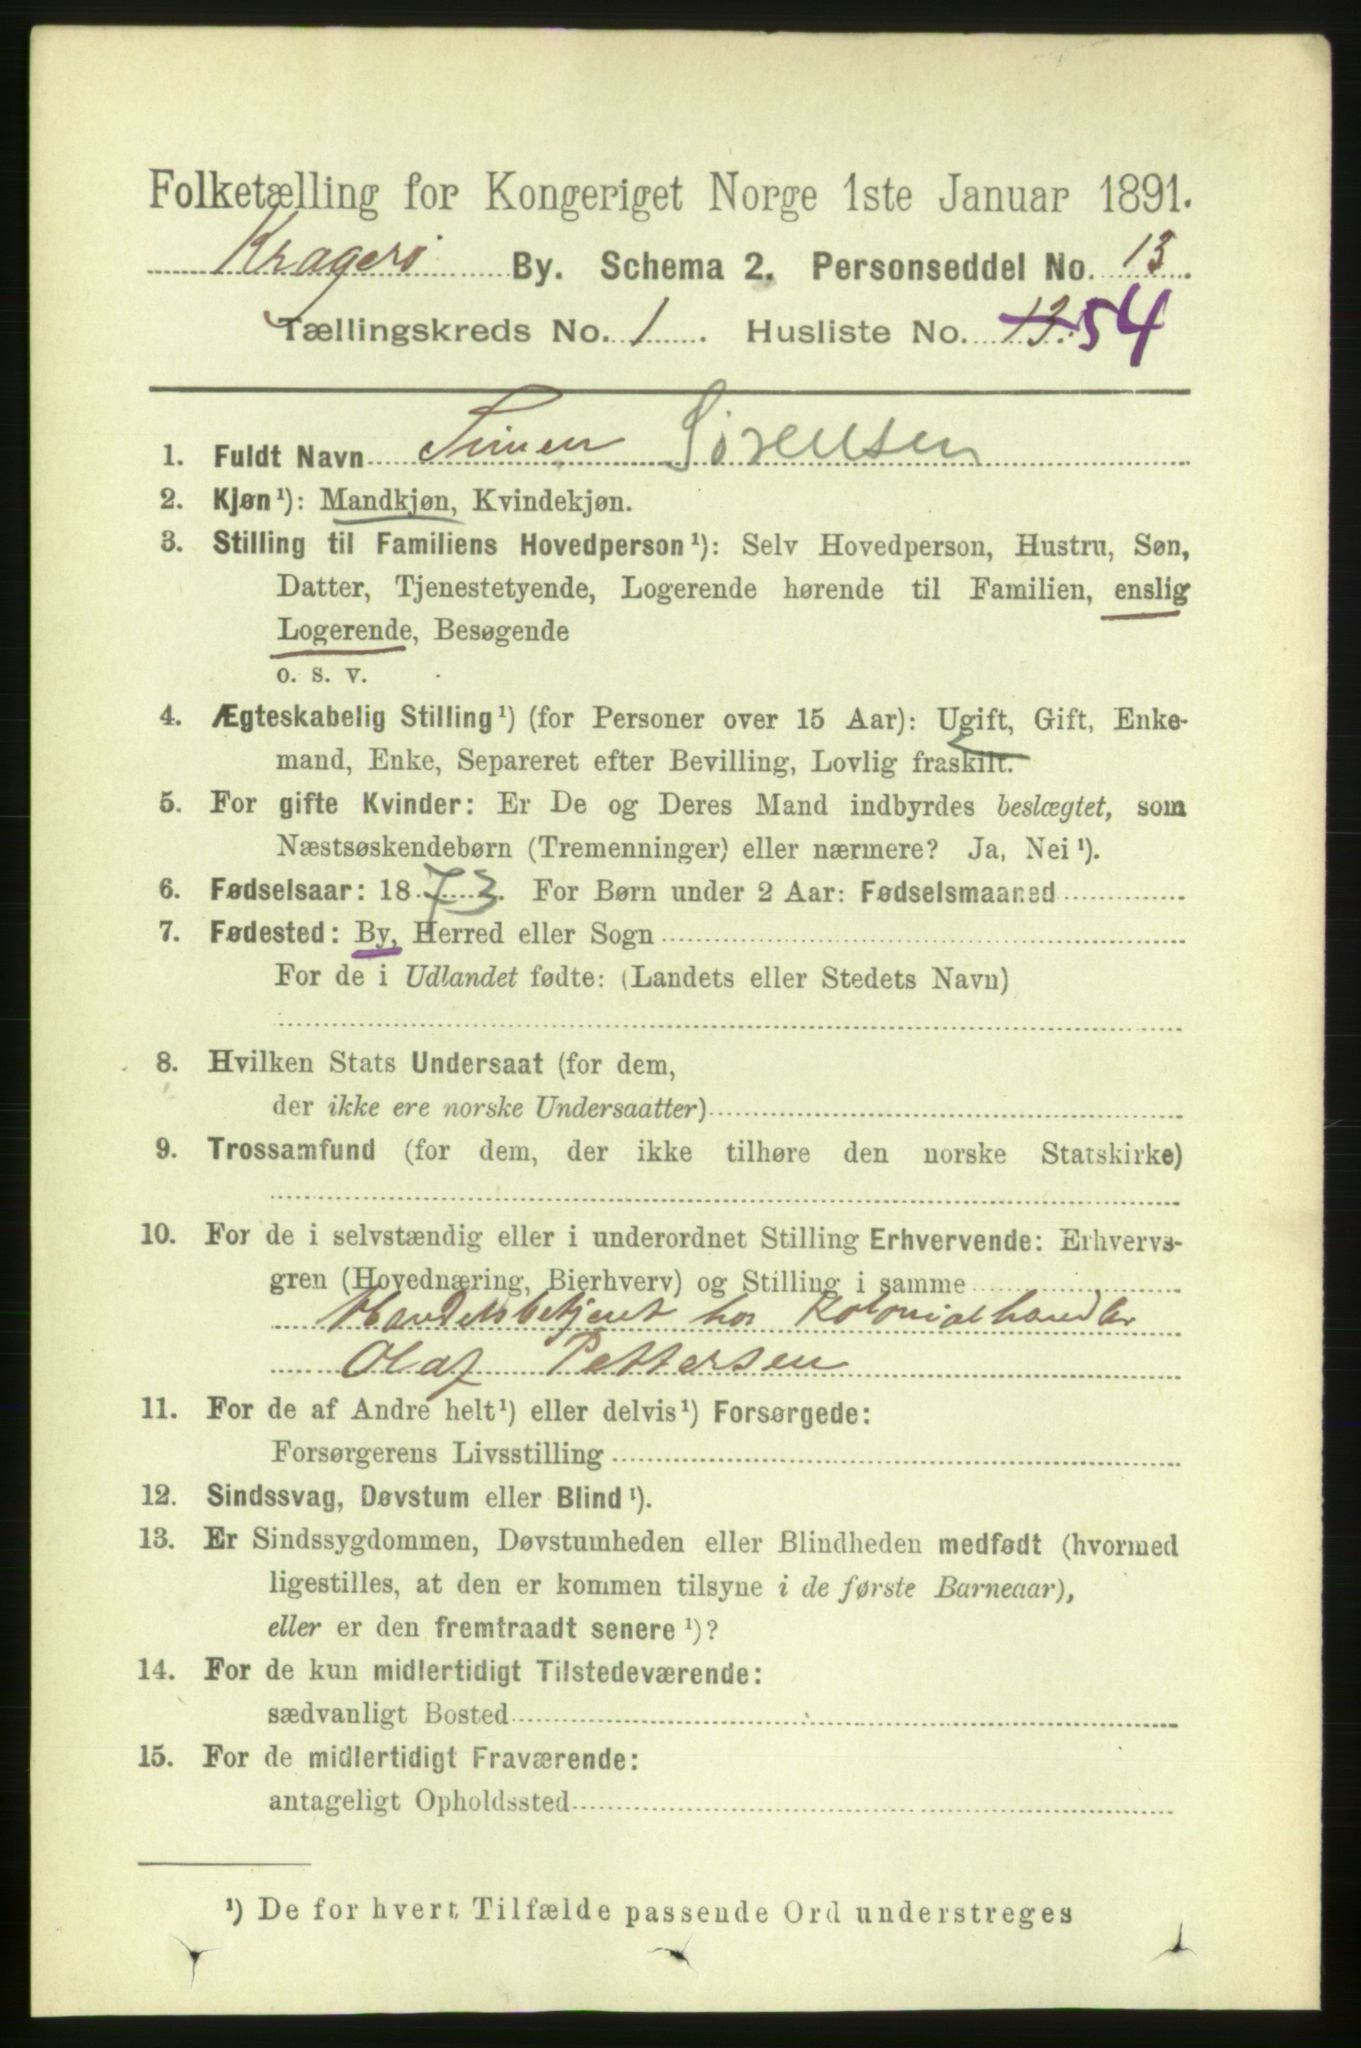 Folketælling for Kongeriget Norge 1ste Januar 1891.
Kragerø By. Schema 2. Personseddel No. 13.
Tællingskreds No. 1. Husliste No. 13. 54
1. Fuldt Navn Simen Sörensen
2. Kjøn¹): Mandkjøn, Kvindekjøn.
3. Stilling til Familiens Hovedperson¹): Selv Hovedperson, Hustru, Søn,
Datter, Tjenestetyende, Logerende hørende til Familien, enslig
Logerende, Besøgende
o. s. v.
4. Ægteskabelig Stilling¹) (for Personer over 15 Aar): Ugift, Gift, Enke-
mand, Enke, Separeret efter Bevilling, Lovlig fraskilt.
5. For gifte Kvinder: Er De og Deres Mand indbyrdes beslægtet, som
Næstsøskendebørn (Tremenninger) eller nærmere? Ja, Nei¹).
6. Fødselsaar: 1873. For Børn under 2 Aar: Fødselsmaaned
7. Fødested: By, Herred eller Sogn
For de i Udlandet fødte: (Landets eller Stedets Navn)
8. Hvilken Stats Undersaat (for dem,
der ikke ere norske Undersaatter)
9. Trossamfund (for dem, der ikke tilhøre den norske Statskirke)
10. For de i selvstændig eller i underordnet Stilling Erhvervende: Erhvervs-
gren (Hovednæring, Bierhverv) og Stilling i samme
Handelsbetjent hos Kolonialhandler
Olaf Pettersen
11. For de af Andre helt¹) eller delvis¹) Forsørgede:
Forsørgerens Livsstilling
12. Sindssvag, Døvstum eller Blind¹).
13. Er Sindssygdommen, Døvstumheden eller Blindheden medfødt (hvormed
ligestilles, at den er kommen tilsyne i de første Barneaar),
eller er den fremtraadt senere¹)?
14. For de kun midlertidigt Tilstedeværende:
sædvanligt Bosted
15. For de midlertidigt Fraværende:
antageligt Opholdssted
¹) De for hvert Tilfælde passende Ord understreges